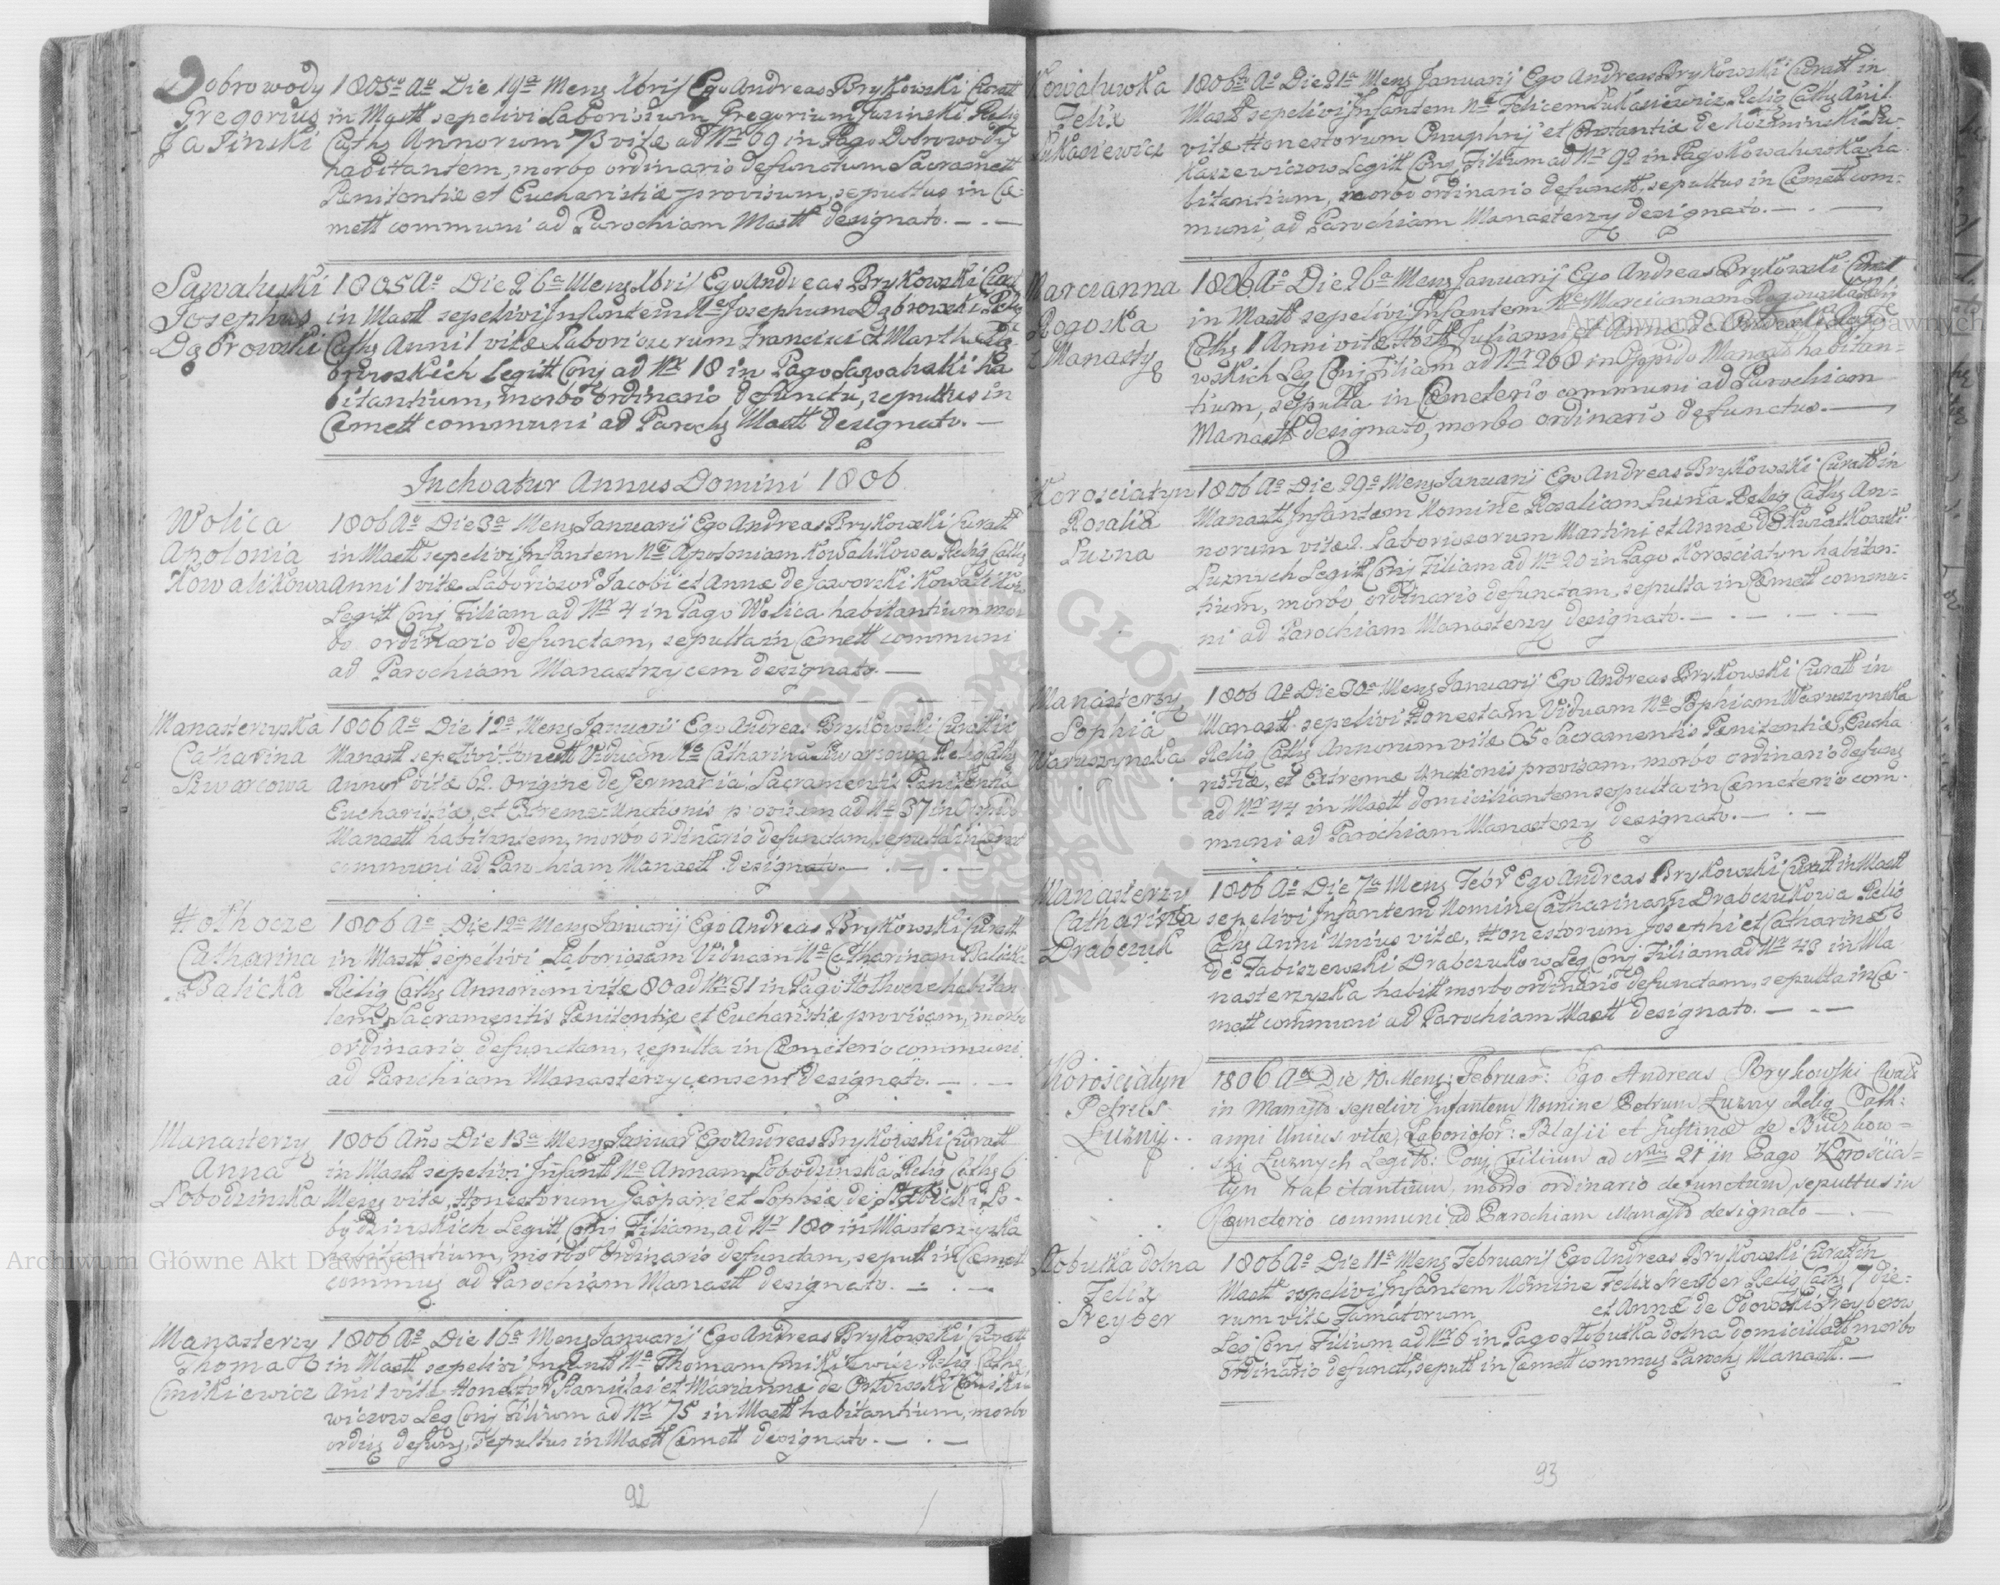 Dobrowody
Gregorius
Jasinski
1805o Ao Die 19a Mens Xbris Ego Andreas Brykowski Curat
in Mastt sepelivi Laboriosum Gregorium Jasinski Relig
Cath Annorum 73 vitæ ad Nr 69 in Pago Dobrowody
habitantem, morbo ordinario defunctum Sacrament
Penitentiæ et Eucharistiæ provisum, sepultus in Cæ-
mett communi ad Parochiam Mastt designato. — . —
Sawaluski
Josephus
Dąbrowski
1805 Ao Die 26a Mens Xbris Ego Andreas Brykowski Curat
in Mastt sepelivi Infantem Ne Josephum Dąbrowski Relig
Cath Anni 1 vitæ Laboriosorum Francisci et Marthæ Dą-
browskich legitt Conj ad Nr 18 in Pago Sawaluski ha
bitantium, morbo ordinario defuncto, sepultus in
Cæmett communi ad Paroch Mastt designato. —
Inchoatur Annus Domini 1806
Wolica
Apolonia
Kowalikowa
1806 Ao Die 3a Mens Januarij Ego Andreas Brykowski Curatt
in Mastt sepelivi Infantem Ne Apoloniam Kowalikowa Relig Cath
Anni 1 vitæ Laboriosor Jacobi et Annæ de Jaworski Kowalikow
Legitt Conj Filiam ad Nr 4 in Pago Wolica habitantium mor-
bo ordinario defunctam, sepulta in Cæmett communi
ad Parochiam Manastrzycem designato. —
Manasterzyska
Catharina
Szwarcowa
1806 Ao Die 12a Mens Januarij Ego Andreas Brykowski Curatt in
Manast sepelivi Honestt Viduam Ne Catharinã Szwarcowa Relig Cath
Annor vitæ 62. Origine de Germania, Sacramentis Penitentiæ
Eucharistiæ, et Extremæ Unctionis provisam ad Nr 37 in Oppido
Manastt habitantem, morbo ordinario defunctam, sepulta in Cæmet
communi ad Parochiam Manastt designato. — . — . —
Hothocze
Catharina
Balicka
1806 Ao Die 12a Mens Januarij Ego Andreas Brykowski Curatt
in Mastt sepelivi Laboriosam Viduam Ne Catharinam Balicka
Relig Cath Annorum vitæ 80 ad Nr 31 in Pago Hothocze habitan
tem, Sacramentis Pænitentiæ et Eucharistiæ provisam, morbo
ordinario defunctam, sepulta in Cæmiterio communi
ad Parochiam Manasterzycensem designato. — . —
Manasterzy
Anna
Lobodzinska
1806 Año Die 13a Mens Januar Ego Andreas Brykowski Curatt
in Mastt sepelivi Infantt Ne Annam Lobodzinska Relig Cath 6
Mens vitæ, Honestorum Gaspari et Sophiæ de Lo-
bodzinskich Legitt Conj Filiam, ad Nr 180 in Masterzyska
habitantium, morbo ordinario defunctam, sepult in Cæmet
commus ad Parochiam Manastt designato. — . —
Manasterzy
Thomas
Cmikiewicz
1806 Ao Die 16a Mens Januarij Ego Andreas Brykowski Curatt
in Mastt sepelivi Infantt Ne Thomam Cmikiewicz Relig Cath
Añi 1 vitæ Honestor Stanislai et Mariannæ de Cmikie-
wiczow Leg Conj Filium ad Nr 75 in Mastt habitantium, morbo
ordin defunc, sepultus in Mastt Cæmett designato. — . —
92
Kowaluwka
Felix
Łukasiewicz
1806 Ao Die 21a Mens Januarij Ego Andreas Brykowski Curatt in
Mastt sepelivi Infantem Ne Felicem Łukasiewicz Relig Cath Añi 1
vitæ Honestorum Onuphrij et Constantiæ de Kozminski Łu-
kaszewiczow Legitt Conj Filium ad Nr 90 in Pago Kowaluwka ha
bitantium, morbo ordinario defunctt, sepultus in Cæmett com-
muni, ad Parochiam Manasterzy designato. — . —
Marcianna
Rogoska
z Manasty
1806 Ao Die 26a Mens Januarij Ego Andreas Brykowski Curatt
in Mastt sepelivi Infantem Ne Marciannam
Cath 1 Anni vitæ, Juliani et Annæ de
wskich Leg Conj Filiam ad Nr 268 in Oppido Manast habitan-
tium, sepulta in Cæmeterio communi ad Parochiam
Manastt designato, morbo ordinario defunctus. —
Korosciatyn
Rosalia
Luzna
1806 Ao Die 29a Mens Januarij Ego Andreas Brykowski Curatt in
Manastt Infantem Nomine Rosaliam Luzna Relig Cath An-
norum vitæ 2. Laboriosorum Martini et Annæ de
Luznych Legitt Conj Filiam ad Nr 20 in Pago Korosciatyn habitan-
tium, morbo ordinario defunctam, sepulta in Cæmett commu-
ni ad Parochiam Manasterzy designato. — . — . —
Manasterzy
Sophia
Waruszynska
1806 Ao Die 30a Mens Januarij Ego Andreas Brykowski Curatt in
Manastt sepelivi Honestam Viduam Ne Sophiam Waruszynska
Relig Cath Annorum vitæ 65 Sacramentis Pænitentiæ, Eucha
ristiæ, et Extremæ Unctionis provisam, morbo ordinario defunc
ad Nr 44 in Mastt domiciliantem sepulta in Cæmeterio com-
muni ad Parochiam Manasterzy designato. — . —
Manasterzy
Catharina
Drabczuk
1806 Ao Die 7a Mens Febr Ego Andreas Brykowski Curatt in Mastt
sepelivi Infantem Nomine Catharinam Drabczukowa Relig
Cath Anni Unius vitæ, Honestorum Josephi et Catharinæ
de Fabiszewski Drabczukow Leg Conj Filiam ad Nr 43 in Ma
nasterzyska habitt morbo ordinario defunctam, sepulta in Cæ-
mett communi ad Parochiam Mastt designato. — . —
Korościatyn
Petrus
Luzny
1806 Ao Die 10. Mens: Februar: Ego Andreas Brykowski Curatt
in Manastt sepelivi Infantem Nomine Petrum Luzny Relig Cath:
anni Unius vitæ, Laboriosor: Blasii et Justinæ de Budzkow-
ski Luznych Legitt: Conj Filium ad Nrum 21 in Pago Korościa-
tyn habitantium, morbo ordinario defunctum, sepultus in
Cæmeterio communi ad Parochiam Manastt designato — . —
Słobutka dolna
Felix
Freyber
1806 Ao Die 11a Mens Februarij Ego Andreas Brykowski Curatt in
Mastt sepelivi Infantem Nomine Felix Freyber Relig Cath 7 die-
rum vitæ Famatorum et Annæ de Osowski Freyberow
Leg Conj Filium ad Nr 6 in Pago Słobutka dolna domiciliatt morbo
ordinario defunct, sepult in Cæmett commus Paroch Manastt. —
93
Archiwum Główne Akt Dawnych
Archiwum Główne Akt Dawnych